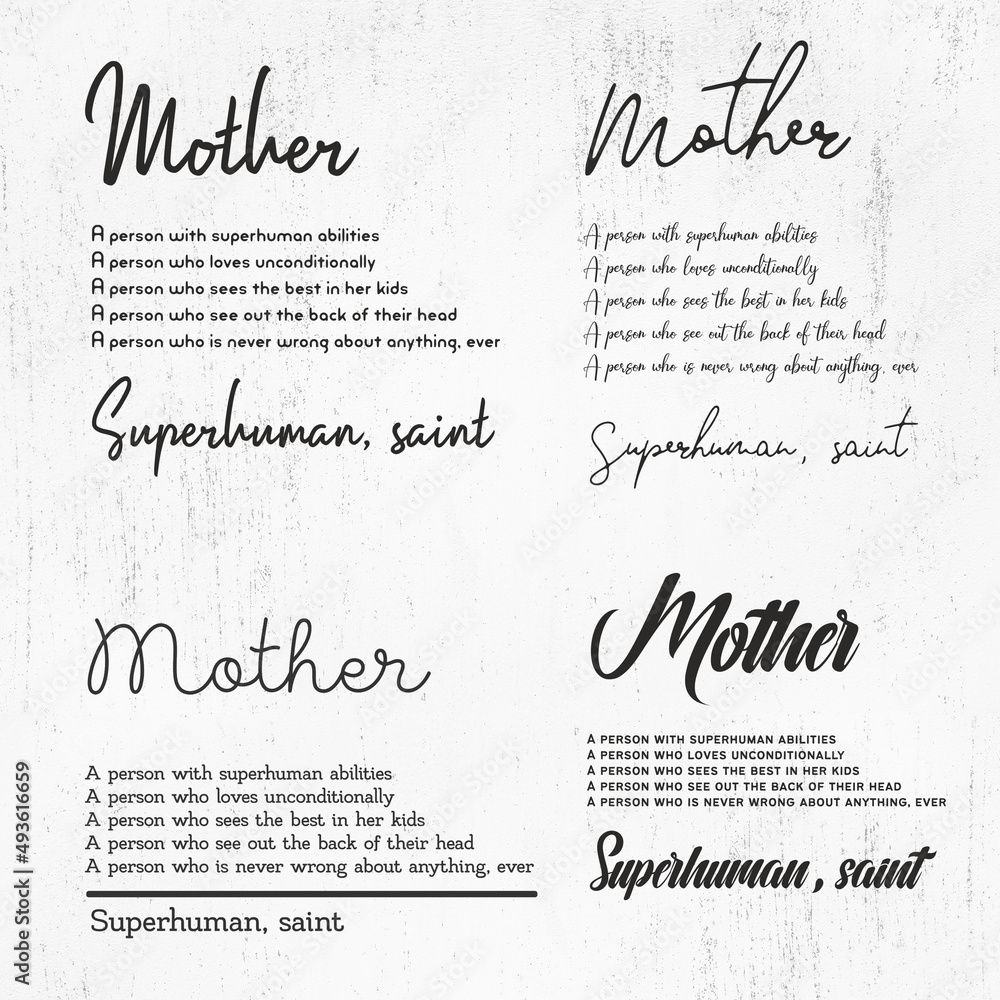 Mother
A person with superhuman abilities
A person who loves unconditionally
A person who sees the best in her kids
A person who see out the back of their head
A person who is never wrong about anything, ever
Superhuman, saint
Mother
A person with superhuman abilities
A person who loves unconditionally
A person who sees the best in her kids
A person who see out the back of their head
A person who is never wrong about anything, ever
Superhuman, saint
Mother
A person with superhuman abilities
A person who loves unconditionally
A person who sees the best in her kids
A person who see out the back of their head
A person who is never wrong about anything, ever
Superhuman, saint
Mother
A PERSON WITH SUPERHUMAN ABILITIES
A PERSON WHO LOVES UNCONDITIONALLY
A PERSON WHO SEES THE BEST IN HER KIDS
A PERSON WHO SEE OUT THE BACK OF THEIR HEAD
A PERSON WHO IS NEVER WRONG ABOUT ANYTHING, EVER
Superhuman, saint
Adobe Stock | #493616659